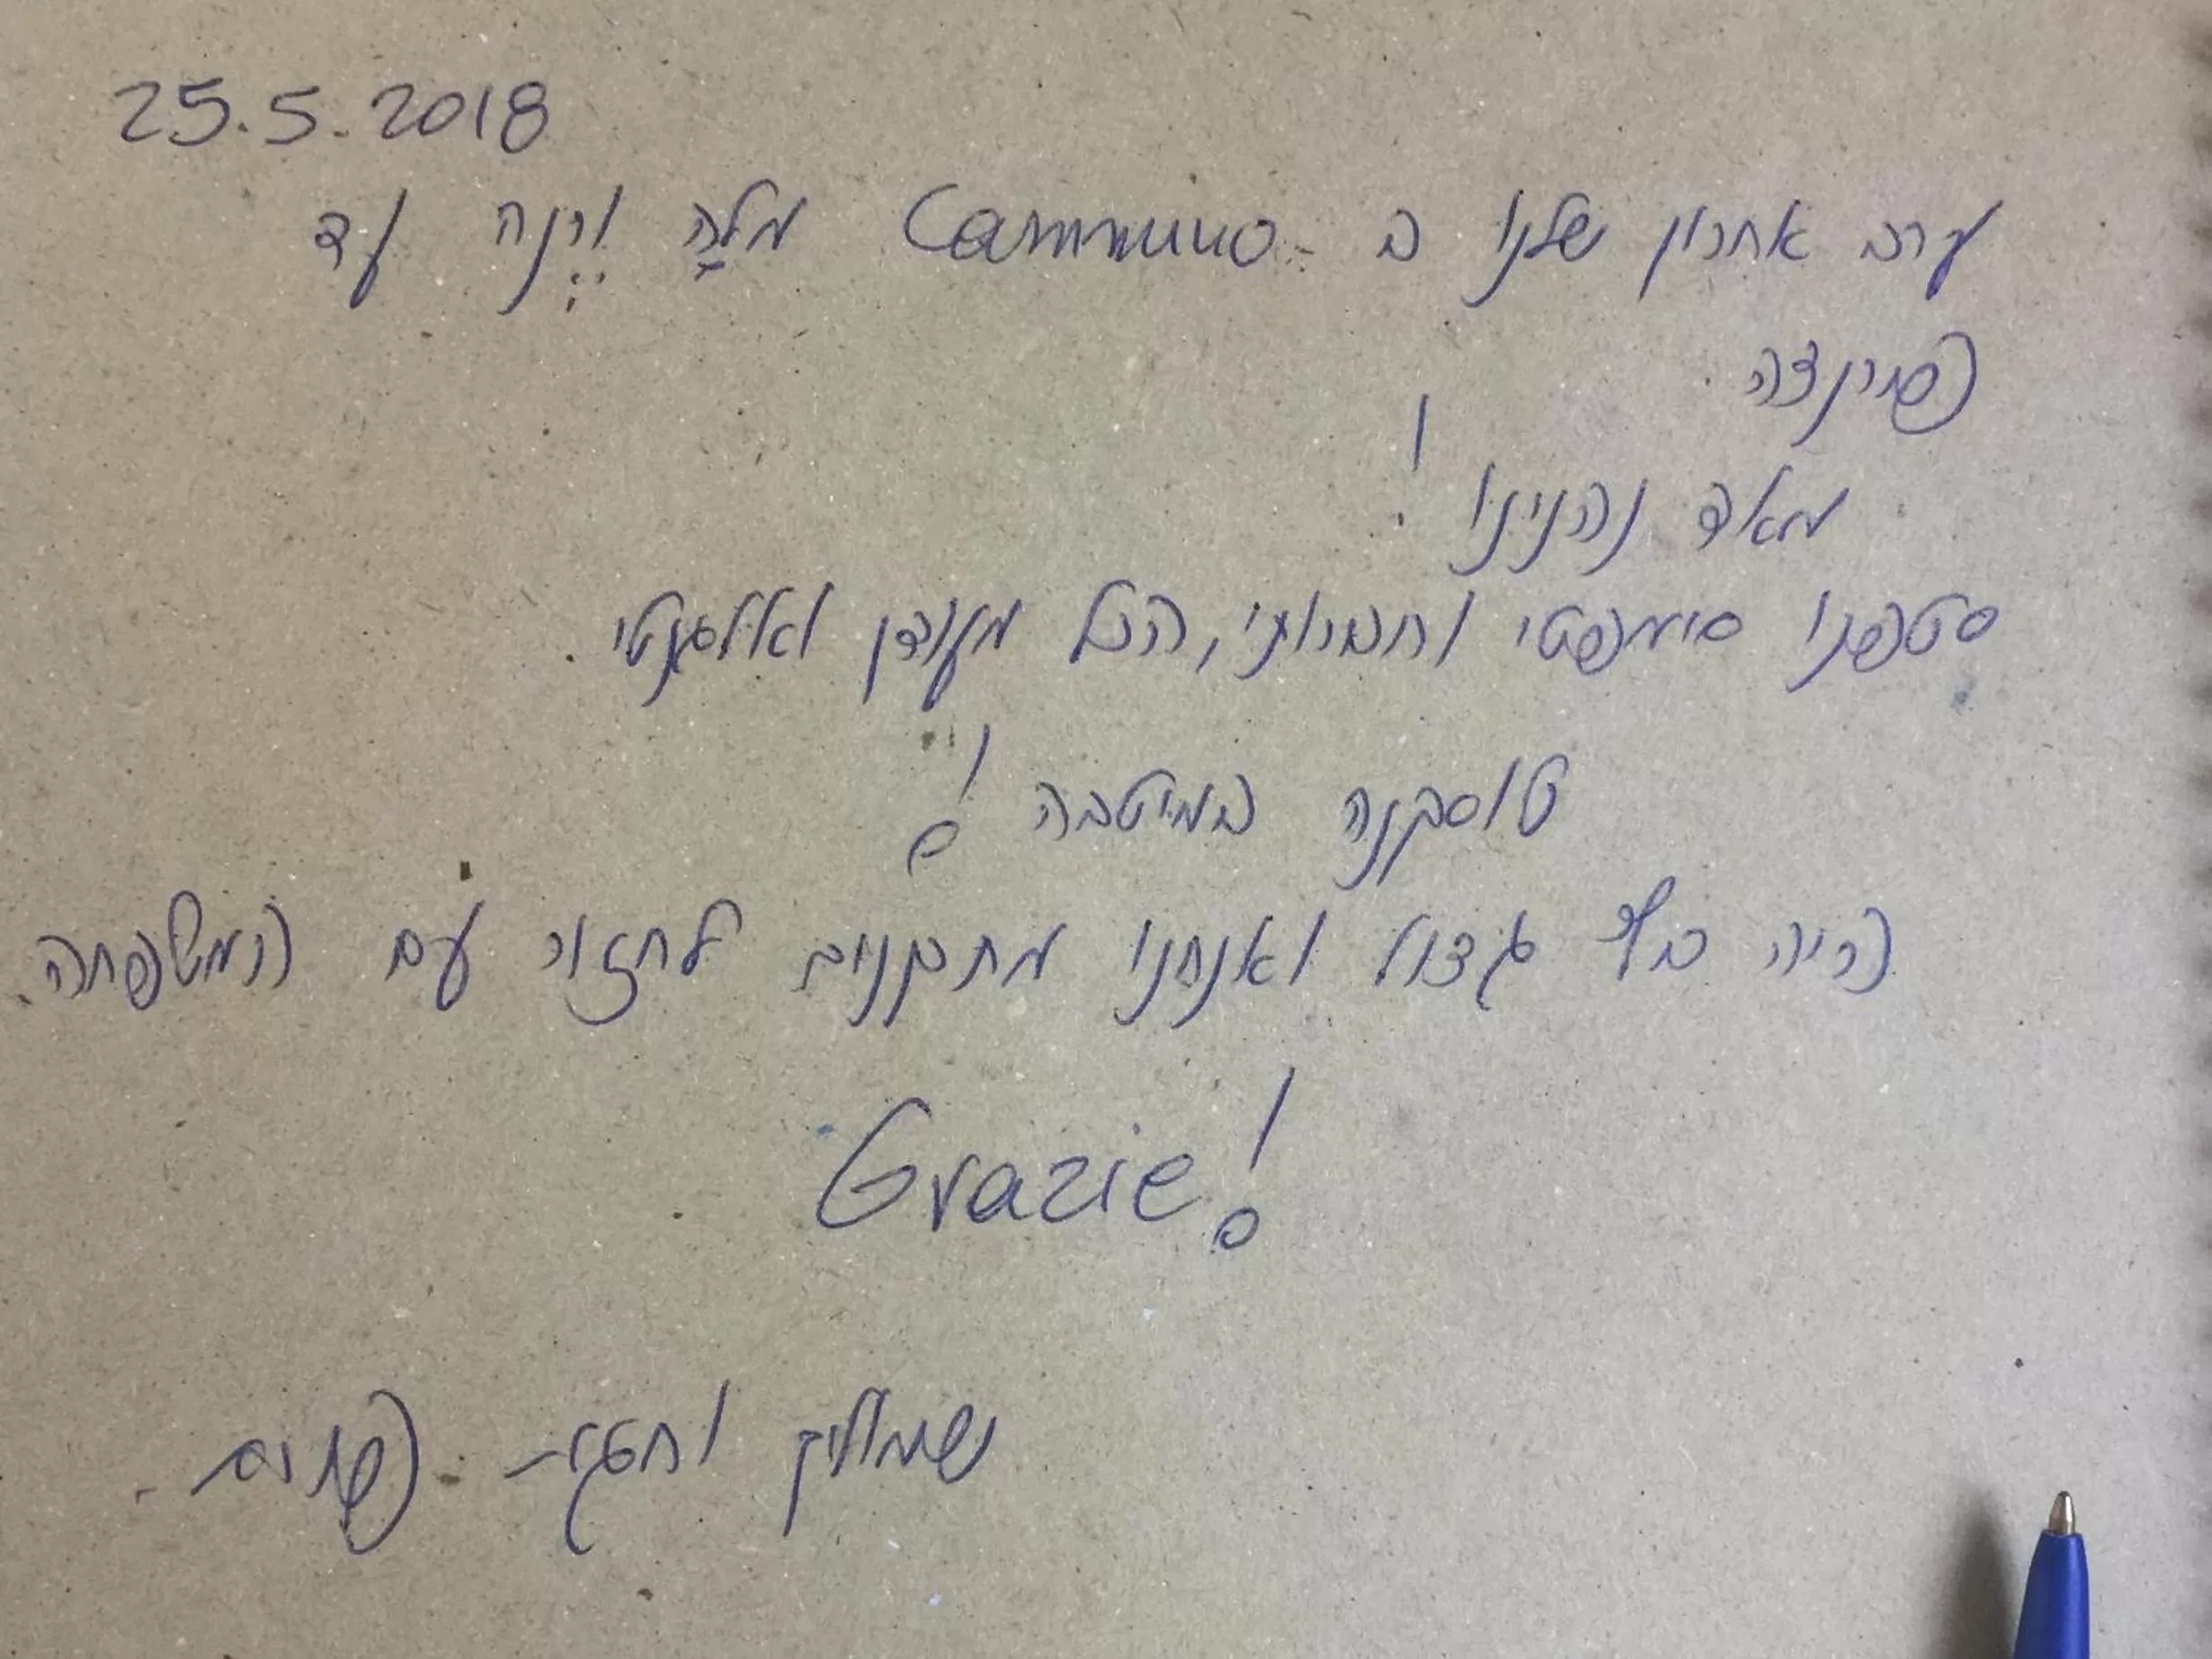 25.5.2018
ערב אחרון שלנו ב - Cammino מלה ורנה עד
פיינצה.
מאד נהנינו!
סטפנו סימפטי וחברותי, הכל מעודן ואלגנטי.
טוסקנה במיטבה!
היה כיף גדול ואנחנו מתכננים לחזור עם המשפחה.
Grazie!
שמוליק